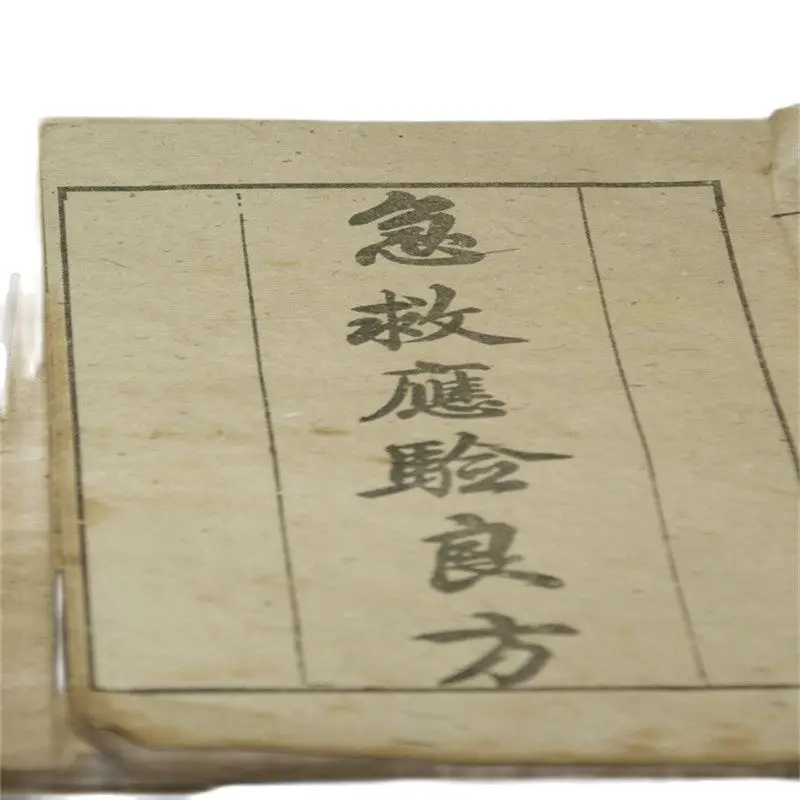 急救應験良方